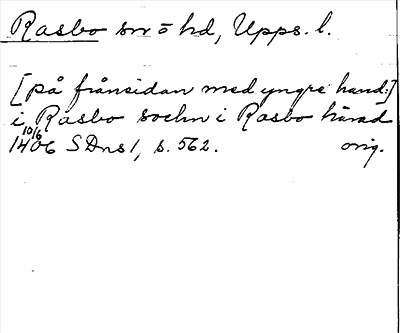 Rasbo sn o hd, Upps. l.
[på frånsidan med yngre hand:]
i Rasbo sochn i Rasbo härad
10/6 1406 SDns 1, s. 562. orig.